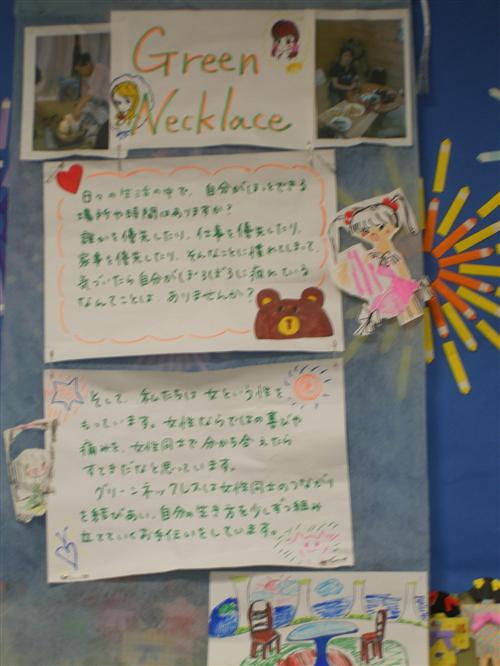 Green
Necklace
日々の生活の中で、自分がほっとできる
場所や時間はありますか?
誰かを優先したり、仕事を優先したり、
家事を優先したり、そんなことに慣れてしまって、
気づいたら自分がぼろぼろに疲れている
なんてことは、ありませんか?
そして、私たちは女という性を
もっています。女性ならではの喜びや
痛みを、女性同士で分かち合えたら
すてきだなと思っています。
グリーンネックレスは女性同士のつながり
を結びあい、自分の生き方を少しずつ組み
立てていくお手伝いをしています。